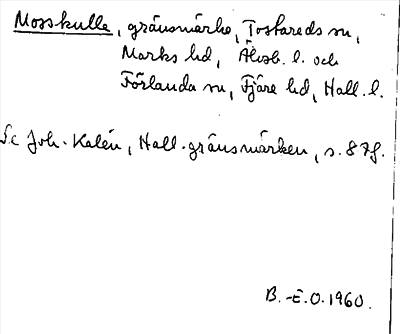 Mosskulle, gränsmärke, Tostareds sn,
Marks hd, Älvsb. l. och
Förlanda sn, Fjäre hd, Hall. l.
Se Joh. Kalén, Hall. gränsmärken, s. 87f.
B.-E.O. 1960.